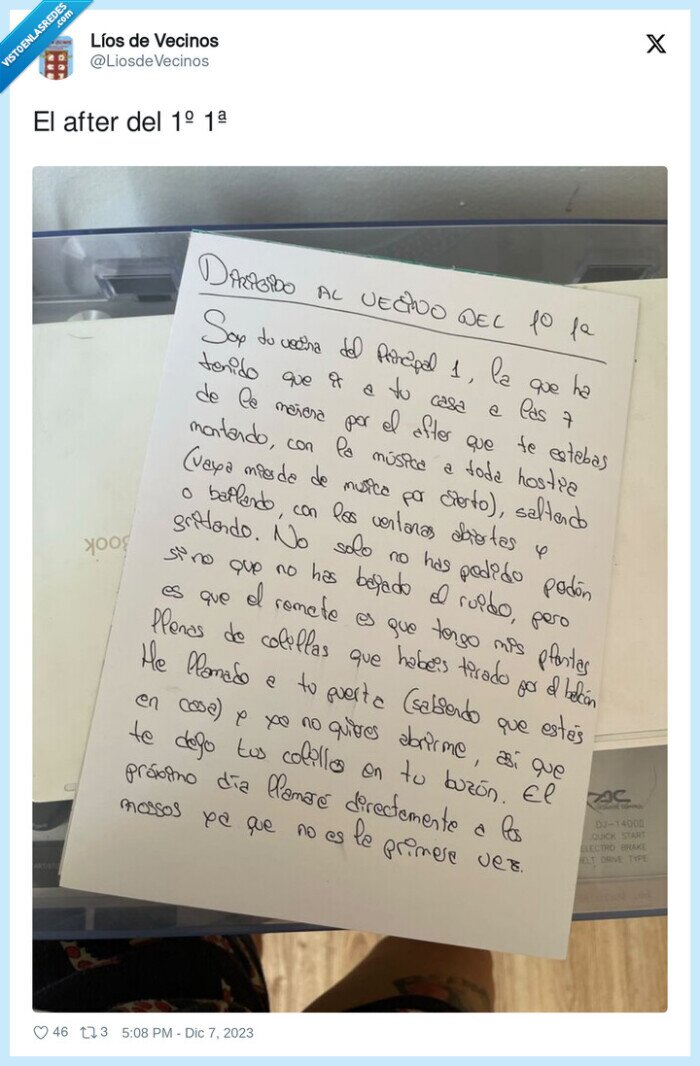 VISTOENLASREDES
.com
Líos de Vecinos
@LiosdeVecinos
El after del 1º 1ª
DIRIGIDO AL VECINO DEL 1º 1ª
Soy tu vecina del Principal 1, la que ha
tenido que ir a tu casa a las 7
de la mañana por el after que te estabas
montando, con la música a toda hostia
(vaya mierda de musica por cierto), saltando
o bailando, con las ventanas abiertas y
gritando. No solo no has pedido perdón
sino que no has bajado el ruido, pero
es que el remate es que tengo mis plantas
llenas de colillas que habéis tirado por el balcón
He llamado a tu puerta (sabiendo que estás
en casa) y ya no quieres abrirme, así que
te dejo tus colillas en tu buzón. El
próximo día llamaré directamente a los
mossos ya que no es la primera vez.
DJ-1400II
QUICK START
ELECTRO BRAKE
BELT DRIVE TYPE
46 3 5:08 PM - Dic 7, 2023